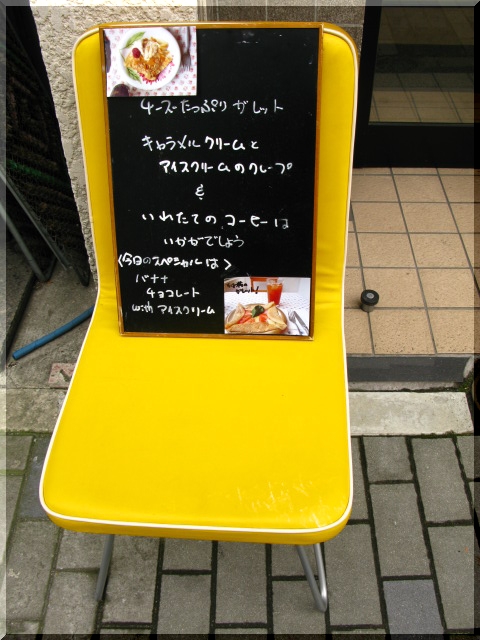 チーズたっぷり ガレット
キャラメルクリームと
アイスクリームのクレープ
&
いれたての コーヒーは
いかがでしょう
<今日のスペシャルは>
バナナ
チョコレート
with アイスクリーム